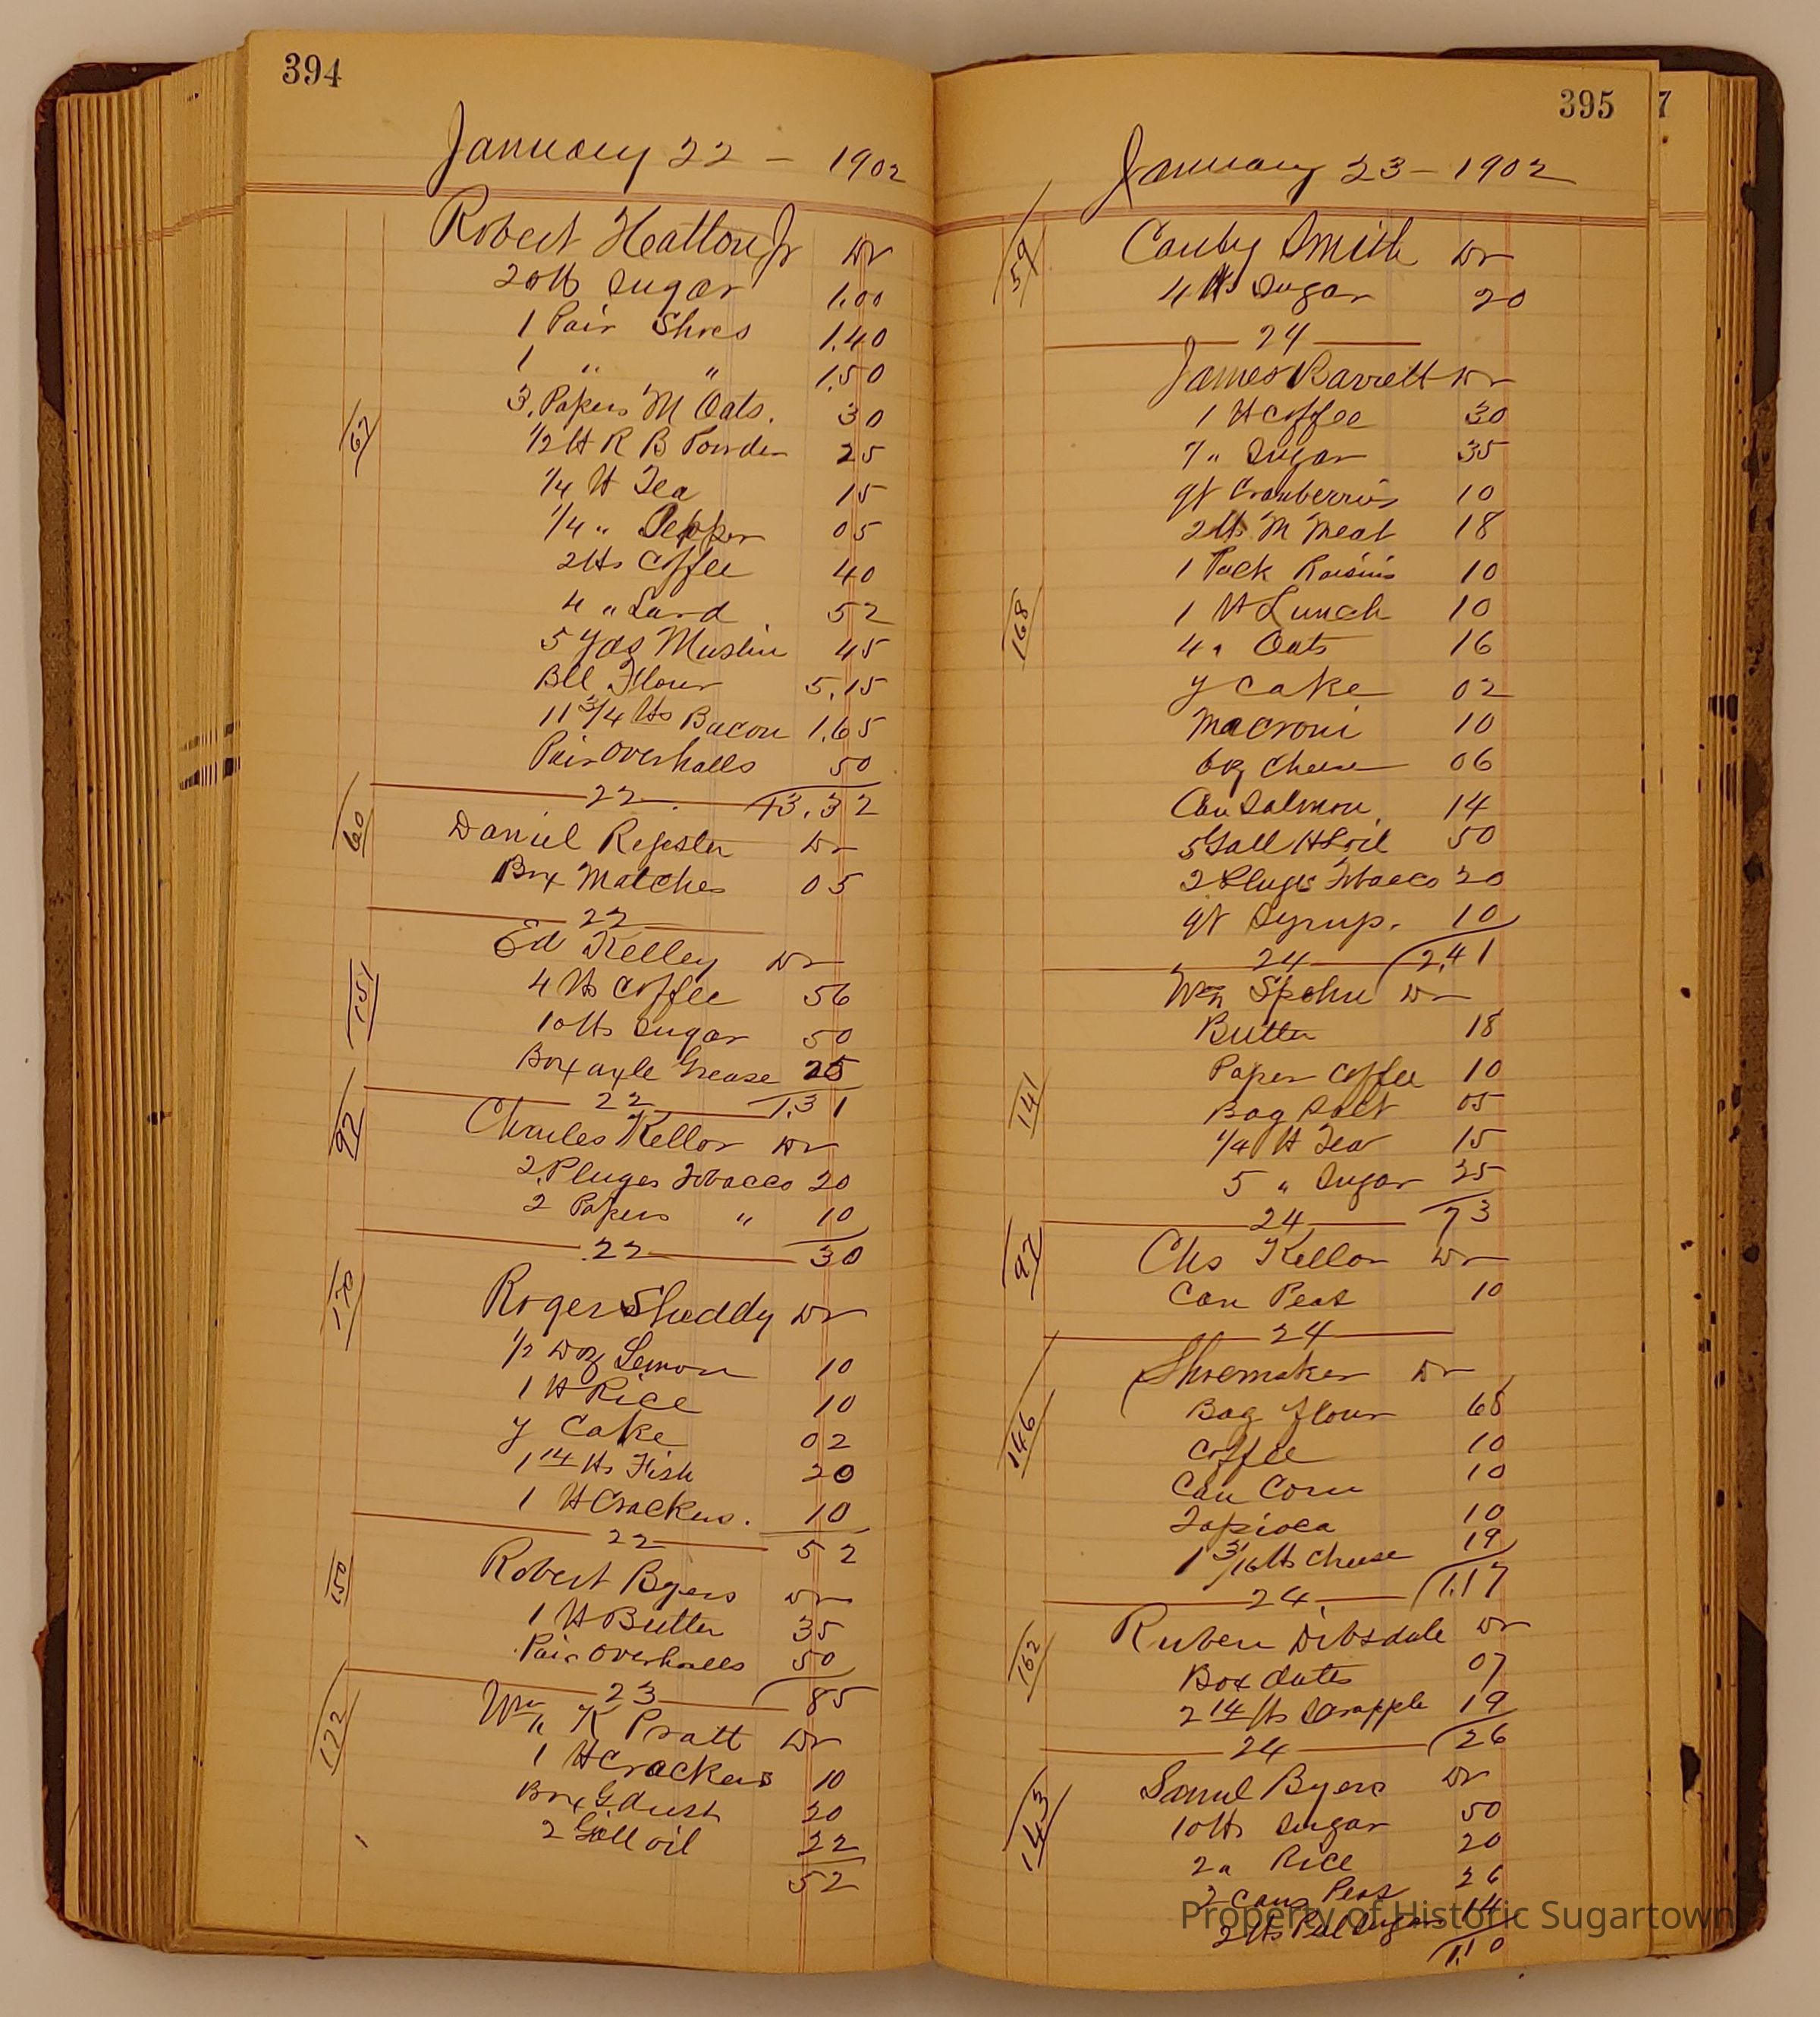 394
January 22 - 1902
Robert Hatton Jr Dr
20 lb Sugar 1.00
1 Pair Shoes 1.40
1 " " 1.50
3 Papers M Oats. 30
67
1/2 lb R B Powder 25
1/4 lb Tea 15
1/4 " Pepper 05
2 lbs Coffee 40
4 " Lard 52
5 Yds Muslin 45
Bll Flour 5.15
11 3/4 lbs Bacon 1.65
Pair Overhalls 50
22 13.32
60
Daniel Register Dr
Box Matches 05
22
Ed Kelley Dr
151
4 lbs Coffee 56
10 lbs Sugar 50
Box axle Grease 25
22 1.31
97
Charles Kellor Dr
2 Pluges Tobacco 20
2 Papers " 10
22 30
170
Roger Sheddy Dr
1/2 Doz Lemon 10
1 lb Rice 10
y Cake 02
1 14 lbs Fish 20
1 lb Crackers. 10
22 52
150
Robert Byers Dr
1 lb Butter 35
Pair Overhalls 50
23 85
172
Wm K Pratt Dr
1 lb Crackers 10
Box G dust 20
2 Gall oil 22
52
395
7
January 23 - 1902
59
Canby Smith Dr
4 lbs Sugar 20
24
James Barrett Dr
1 lb Coffee 30
7 " Sugar 35
qt Cranberries 10
2 lbs M Meat 18
1 Pack Raisins 10
168
1 lb Lunch 10
4 " Oats 16
y Cake 02
Macroni 10
6 oz Cheese 06
Can Salmon 14
5 Gall H L oil 50
2 Pluges Tobacco 20
qt Syrup. 10
24 2.41
Wm Spohn Dr
Butter 18
Paper Coffee 10
141
Bag Salt 05
1/4 lb Tea 15
5 " Sugar 25
24 73
97
Chs Kellor Dr
Can Peas 10
24
Shoemaker Dr
146
Bag Flour 68
Coffee 10
Can Corn 10
Tapioca 10
1 3/16 lbs Cheese 19
24 1.17
162
Ruben Dibsdale Dr
Box dates 07
2 14 lbs Scrapple 19
24 26
143
Samul Byers Dr
10 lbs Sugar 50
2 " Rice 20
2 Cans Peas 26
2 lbs Pul Sugar 14
1.10
Property of Historic Sugartown